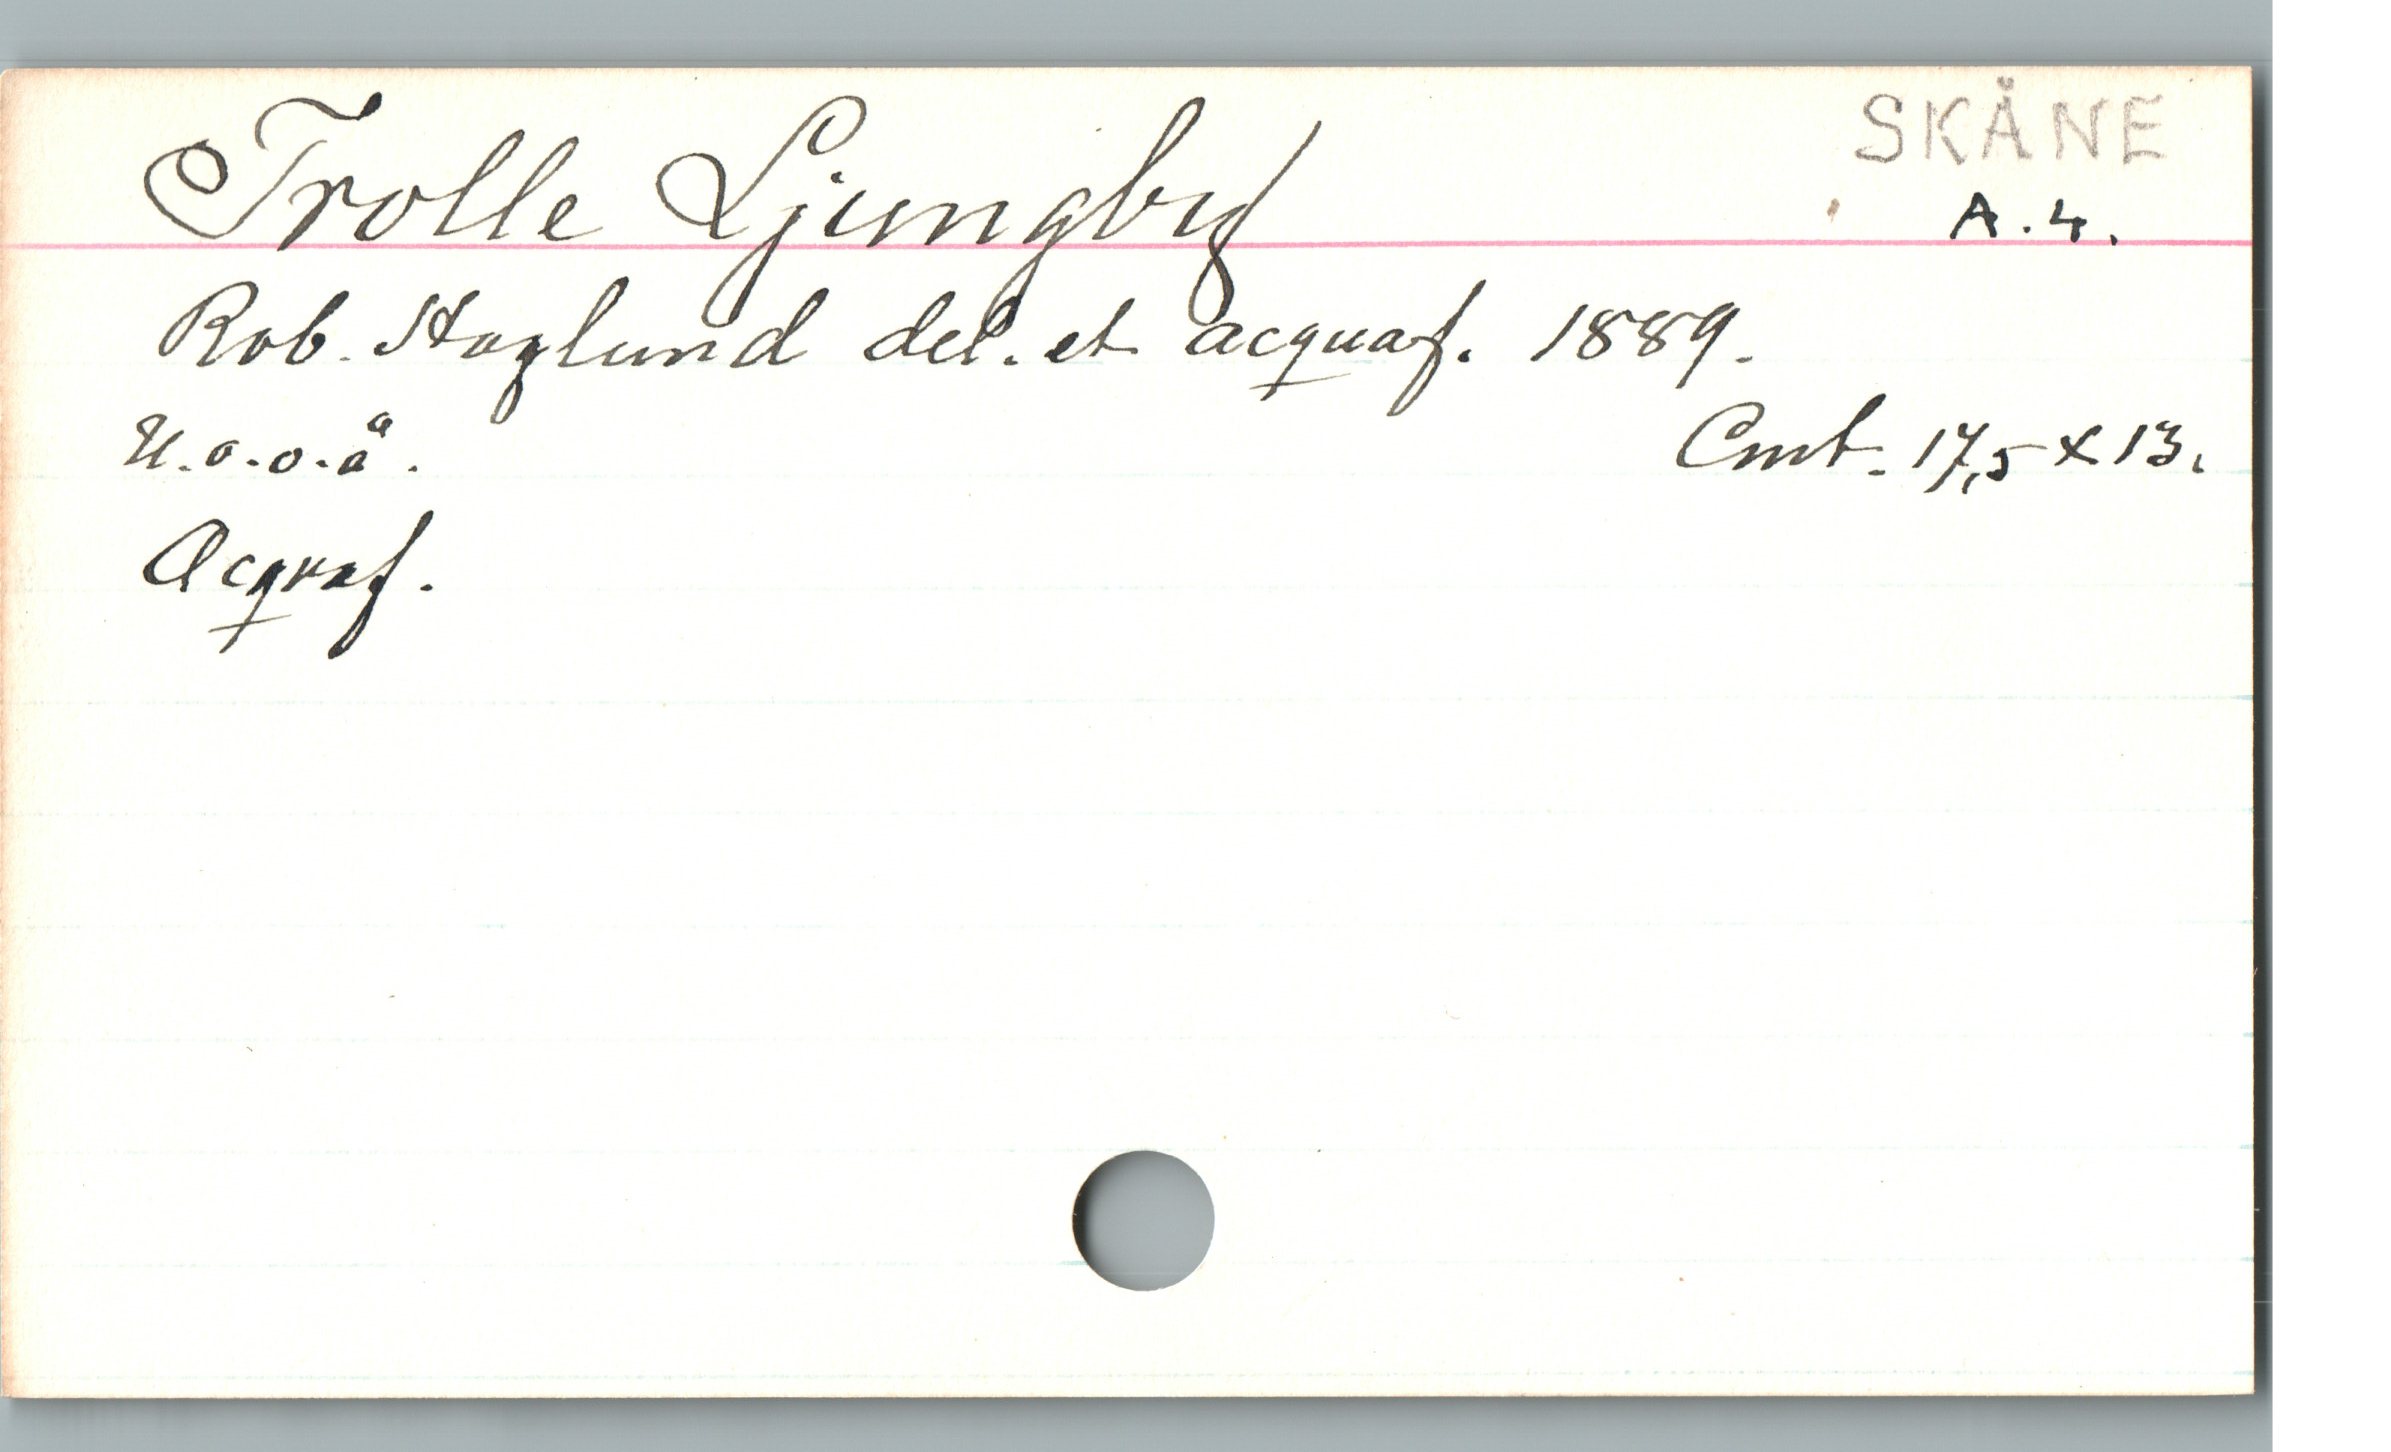 Trolle Ljungby
SKÅNE
A.4.
Rob. Haglund del. et acquaf. 1889.
U.o.o.å.
Cmt. 17,5 x 13.
Acqraf.